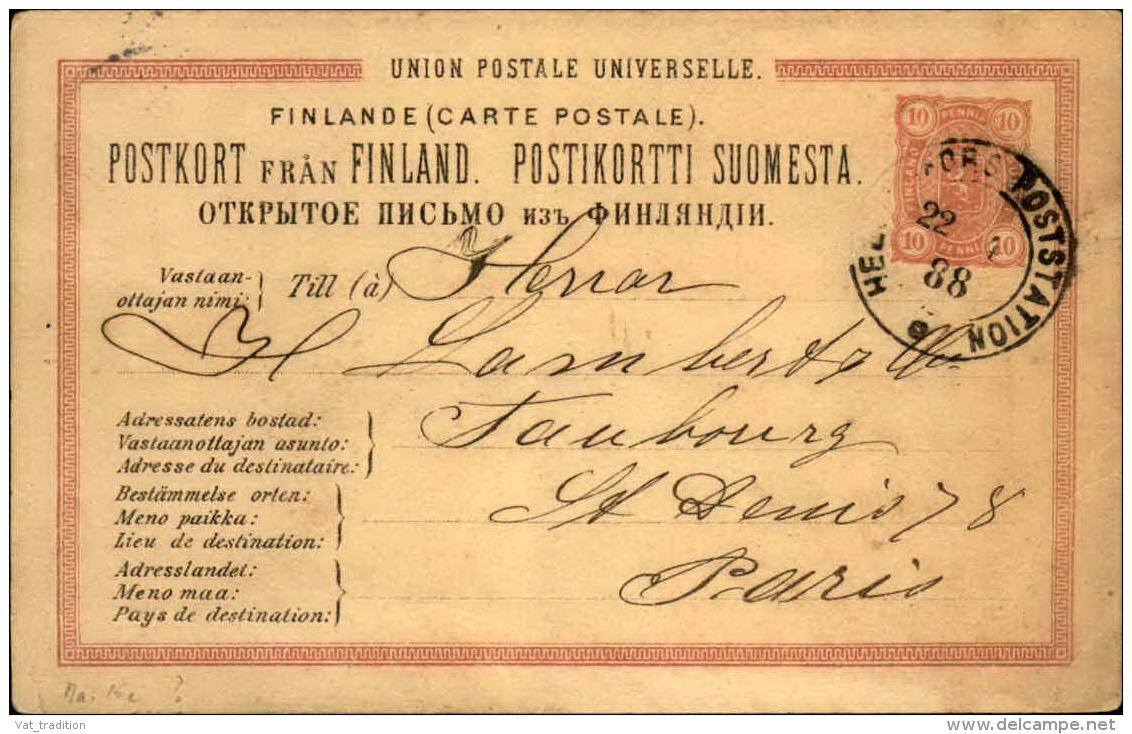 UNION POSTALE UNIVERSELLE.
FINLANDE (CARTE POSTALE).
POSTKORT FRÅN FINLAND. POSTIKORTTI SUOMESTA.
ОТКРЫТОЕ ПИСЬМО изъ ФИНЛЯНДІИ.
10 PENNIA 10
FINLAND
10 PENNI 10
POSTSTATION
22
88
Vastaan-
ottajan nimi:
Till (à) Herrar
H Lambert &
Adressatens bostad:
Vastaanottajan asunto:
Adresse du destinataire:
Faubourg
Bestämmelse orten:
Meno paikka:
Lieu de destination:
St Denis 78
Adresslandet:
Meno maa:
Pays de destination:
Paris
Vat_tradition
www.delcampe.net